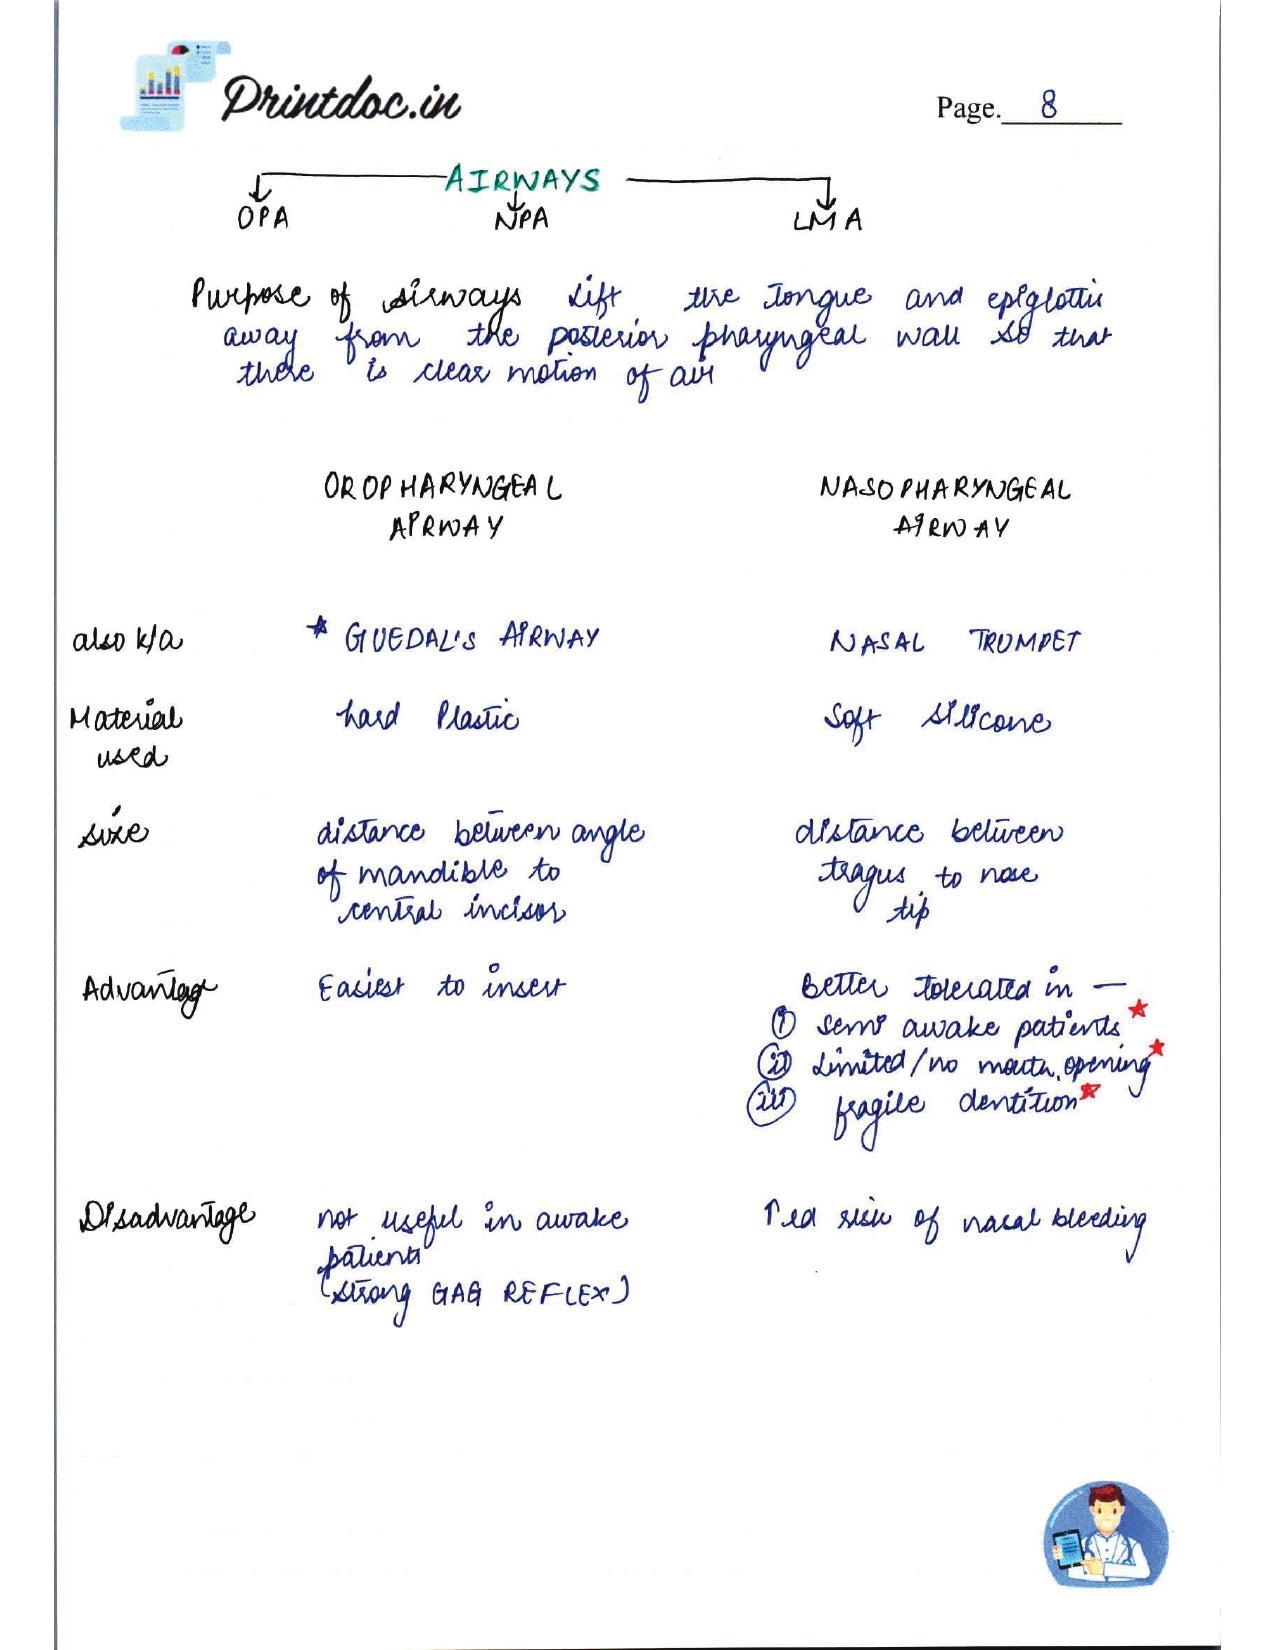 Printdoc.in
Page. 8
AIRWAYS
OPA NPA LMA
Purpose of airways Lift the tongue and epiglottis
away from the posterior pharyngeal wall so that
there is clear motion of air
OROPHARYNGEAL NASOPHARYNGEAL
AIRWAY AIRWAY
also k/a * GUEDAL'S AIRWAY NASAL TRUMPET
Material hard Plastic Soft silicone
used
size distance between angle distance between
of mandible to tragus to nose
central incisor tip
Advantage Easiest to insert Better tolerated in —
(i) semi awake patients ★
(ii) Limited/no mouth opening ★
(iii) fragile dentition ★
Disadvantage not useful in awake ↑ed risk of nasal bleeding
patients
(strong GAG REFLEX)